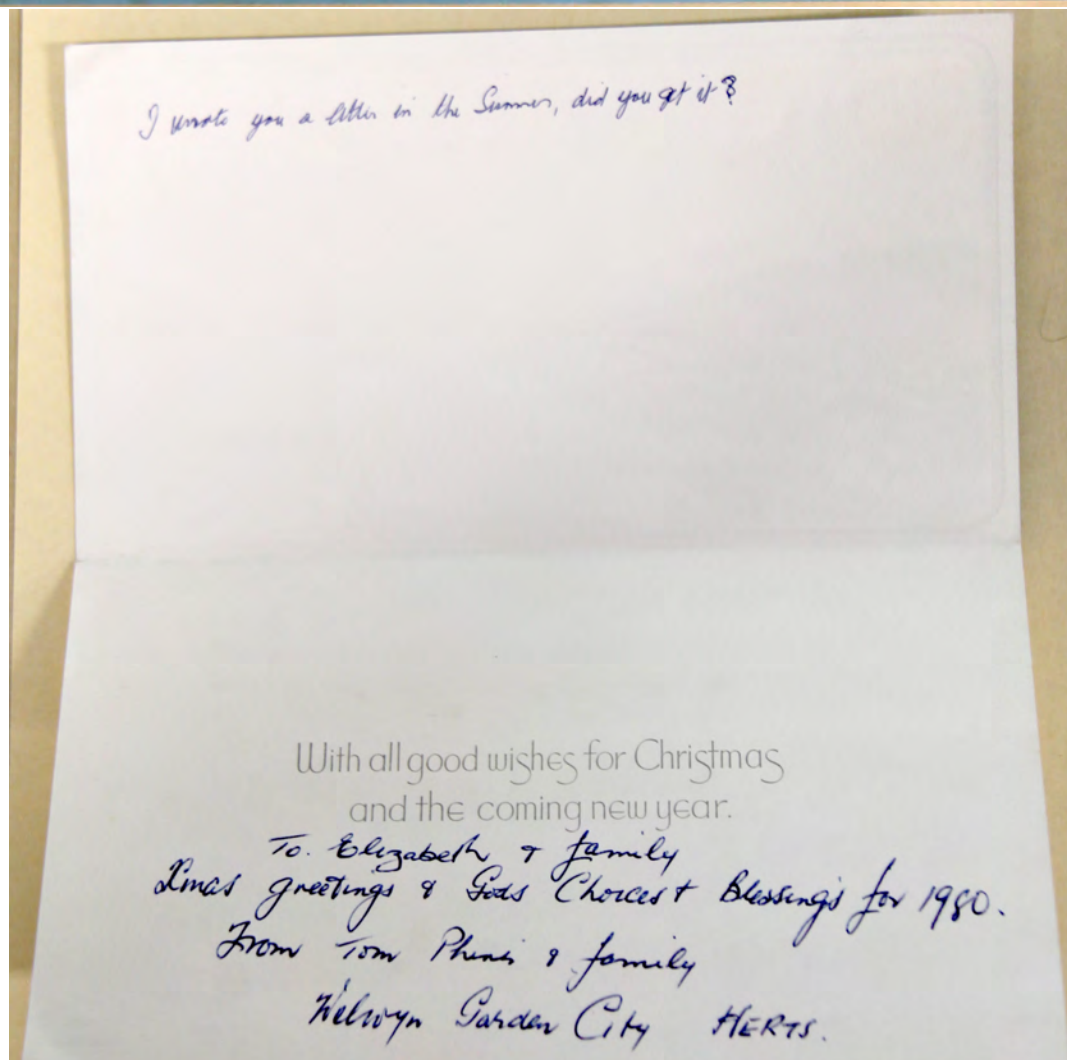 I wrote you a letter in the Summer, did you get it?
With all good wishes for Christmas
and the coming new year.
To. Elizabeth & family
Xmas greetings & Gods Choicest Blessings for 1980.
From Tom & family
Welwyn Garden City HERTS.